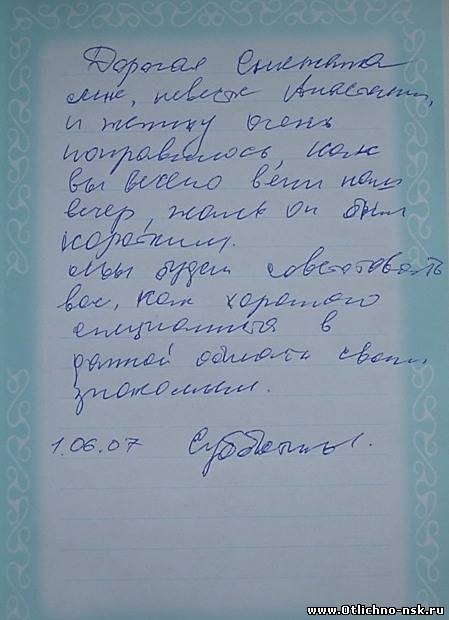 Дорогая Снежана
мне, невесте Анастасии,
и жениху очень
понравилось, как
вы весело вели наш
вечер, жаль он был
коротким.
Мы будем советовать
вас, как хорошего
специалиста в
данной области своим
знакомым.
1.06.07 Субботины.
www.Otlichno-nsk.ru